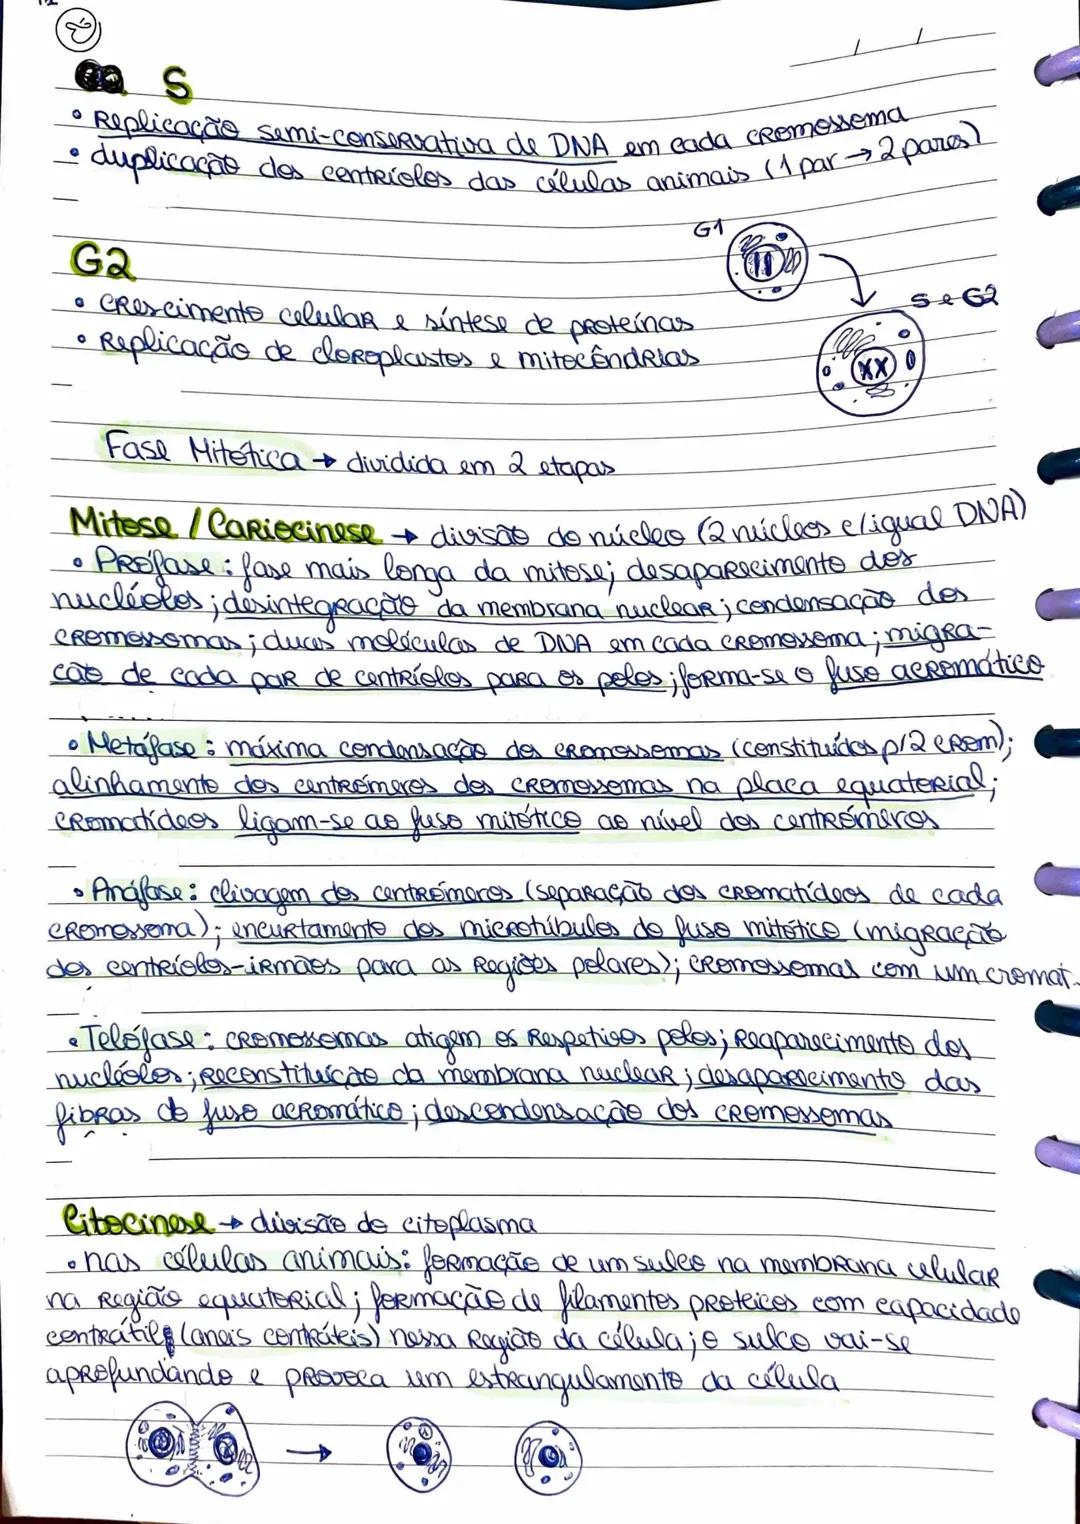 S
• Replicação semi-conservativa de DNA em cada cromossoma
• duplicação dos centríolos das células animais (1 par → 2 pares)
G1
G2
S e G2
• crescimento celular e síntese de proteínas
• Replicação de cloroplastos e mitocôndrias
Fase Mitótica → dividida em 2 etapas
Mitose / Cariocinese → divisão do núcleo (2 núcleos c/igual DNA)
• Prófase: fase mais longa da mitose; desaparecimento dos
nucléolos; desintegração da membrana nuclear; condensação dos
cromossomas; duas moléculas de DNA em cada cromossoma; migra-
ção de cada par de centríolos para os polos; forma-se o fuso acromático
• Metáfase: máxima condensação dos cromossomas (constituídos p/2 crom);
alinhamento dos centrómeros dos cromossomas na placa equatorial;
cromatídeos ligam-se ao fuso mitótico ao nível dos centrómeros
• Anáfase: clivagem dos centrómeros (separação dos cromatídeos de cada
cromossoma); encurtamento dos microtúbulos do fuso mitótico (migração
dos centríolos-irmãos para as regiões polares); cromossomas com um cromat.
• Telófase: cromossomas atigem os respetivos polos; reaparecimento dos
nucléolos; reconstituição da membrana nuclear; desaparecimento das
fibras do fuso acromático; descondensação dos cromossomas
Citocinese → divisão do citoplasma
• nas células animais: formação de um sulco na membrana celular
na região equatorial; formação de filamentos proteicos com capacidade
contrátil (aneis contráteis) nessa região da célula; o sulco vai-se
aprofundando e provoca um estrangulamento da célula